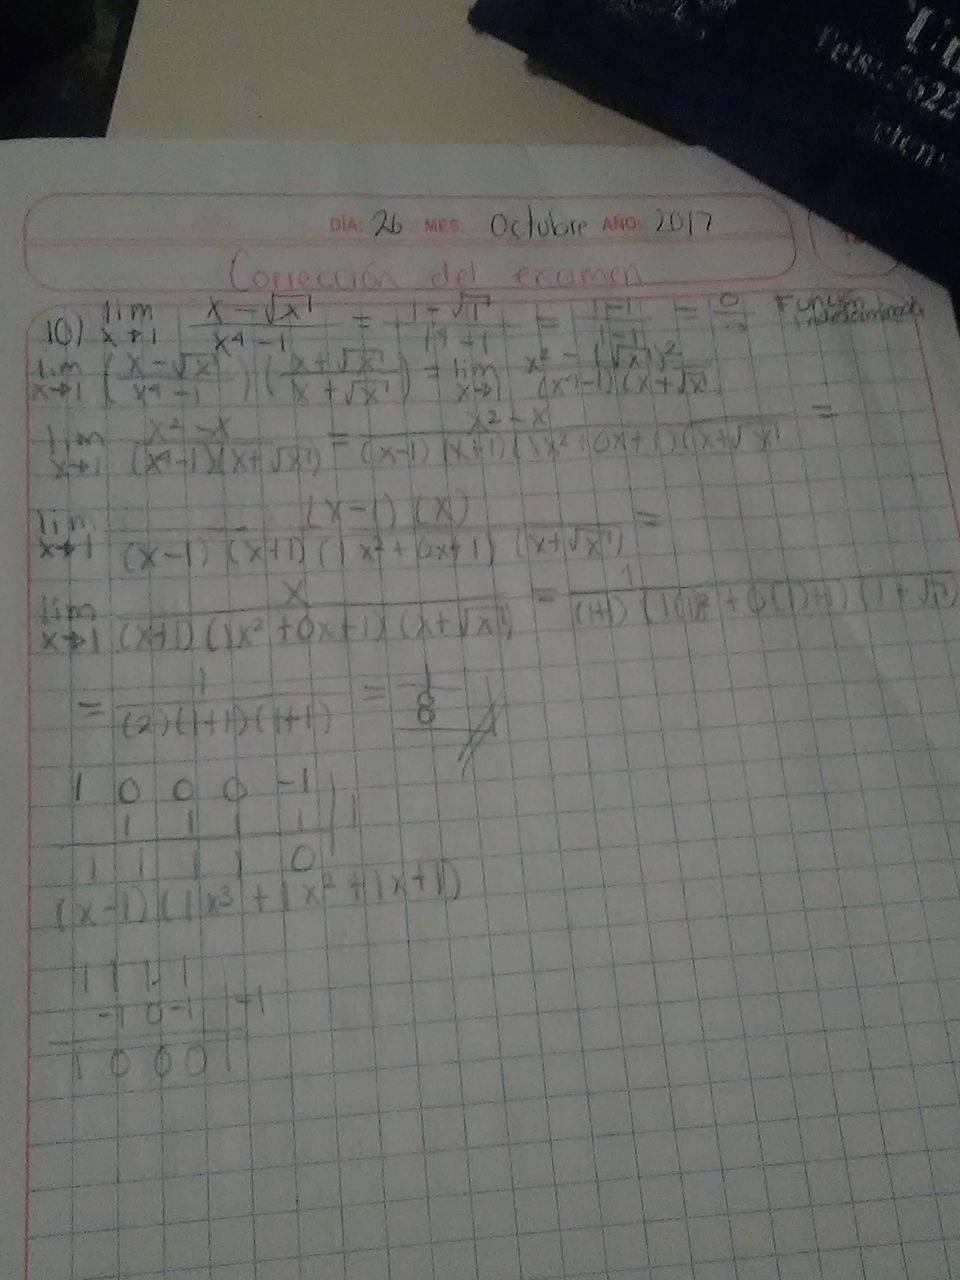 Fels: 2622
DÍA: 26 MES: Octubre AÑO: 2017
Corrección del examen
10) lim x→1 (x - √x)/(x⁴ - 1) = (1 - √1)/(1⁴ - 1) = (1-1)/(1-1) = 0/0
lim x→1 ((x - √x)/(x⁴ - 1)) ((x + √x)/(x + √x)) = lim x→1 (x² - (√x)²)/((x⁴-1)(x+√x)
lim x→1 (x² - x)/((x⁴-1)(x+√x)) = (x² - x)/((x-1)(x+1)(1x²+0x+1)(x+√x) =
lim x→1 ((x-1)(x))/((x-1)(x+1)(1x²+0x+1)(x+√x)) =
lim x→1 x/((x+1)(1x²+0x+1)(x+√x)) = 1/((1+1)(1(1)²+0(1)+1)(1+√1)
= 1/((2)(1+1)(1+1)) = 1/8
1 0 0 0 -1
1 1 1 1 | 1
1 1 1 1 0
(x-1)(1x³+1x²+1x+1)
1 1 1 1
-1 0 -1 | -1
1 0 0 0